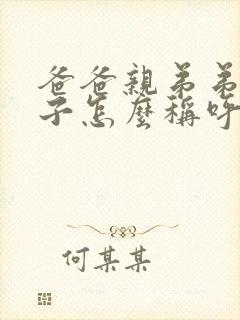 爸爸親弟弟
子怎麼稱呼
何某某